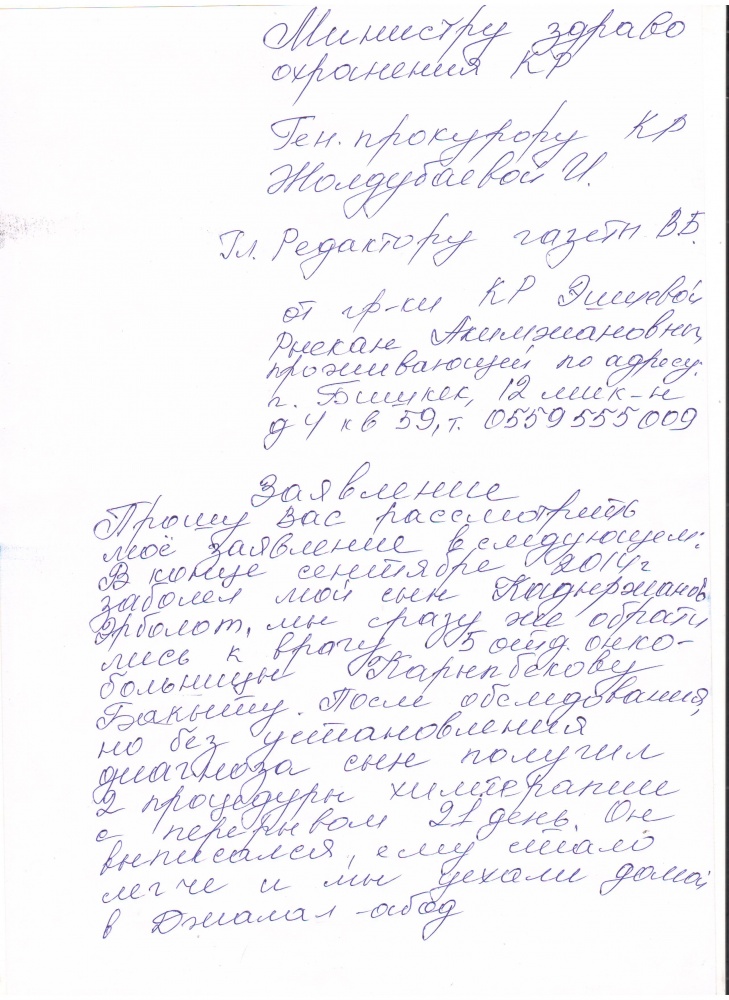 Министру здраво
охранения КР
Ген. прокурору КР
Жолдубаевой И.
Гл. Редактору газеты ВБ.
от гр-ки КР Эшиевой
Рыскан Акимжановны,
проживающей по адресу:
г. Бишкек, 12 мик-н
д 4 кв 59, т. 0559 555 009
Заявление
Прошу вас рассмотреть
моё заявление в следующем:
В конце сентября 2014 г
заболел мой сын Кадыржанов
Эрболот, мы сразу же обрати
лись к врачу 5 отд. онко-
больницы Карыпбекову
Бакыту. После обследования,
но без установления
диагноза сын получил
2 процедуры химтерапии
с перерывом 21 день. Он
выписался, ему стало
легче и мы уехали домой
в Джалал-абад